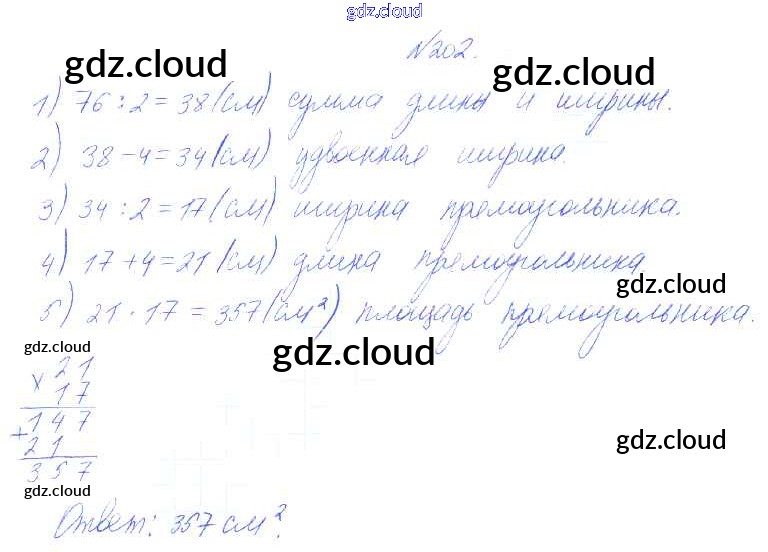 gdz.cloud
№202.
gdz.cloud
gdz.cloud
1) 76 : 2 = 38 (см) сумма длины и ширины.
2) 38 - 4 = 34 (см) удвоенная ширина.
3) 34 : 2 = 17 (см) ширина прямоугольника.
4) 17 + 4 = 21 (см) длина прямоугольника
gdz.cloud
5) 21 · 17 = 357 (см²) площадь прямоугольника.
gdz.cloud
gdz.cloud
× 21
17
147
+ 21
gdz.cloud
357
gdz.cloud
Ответ: 357 см².